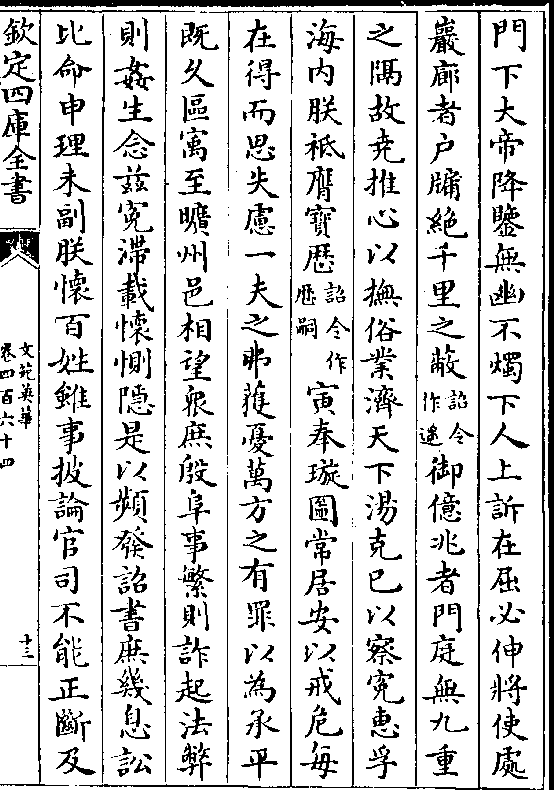 門下大帝降鑒無幽不燭下人上訴在屈必伸將使處
巖廊者户牖絶千里之蔽詔令作遥御億兆者門庭無九重
之隔故堯推心以撫俗業濟天下湯克已以察寃惠孚
海内朕袛膺寳歴詔令作歴嗣寅奉璇圖常居安以戒危每
在得而思失慮一夫之弗獲憂萬方之有罪以為承平
既久區寓至曠州邑相望衆庶殷阜事繁則詐起法弊
則姦生念兹寃滯載懷惻隠是以頻發詔書庶幾息訟
比命申理未副朕懷百姓雖事披論官司不能正斷及
欽定四庫全書
文苑英華
卷四百六十四
十三